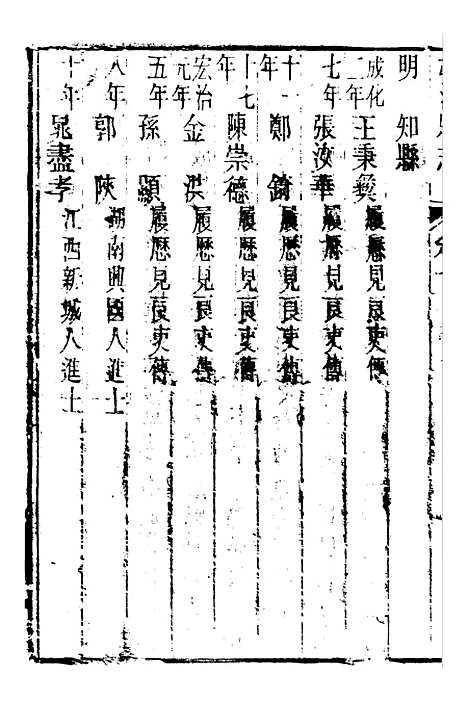 明　知縣
成化二年　王秉彝　履歷見良吏傳
七年　張汝華　履歷見良吏傳
十一年　鄭　錡　履歷見良吏傳
十七年　陳崇德　履歷見良吏傳
宏治元年　金　洪　履歷見良吏傳
五年　孫　顯　履歷見良吏傳
八年　郭　陝　湖南興國人進士
十年　晁盡孝　江西新城人進士